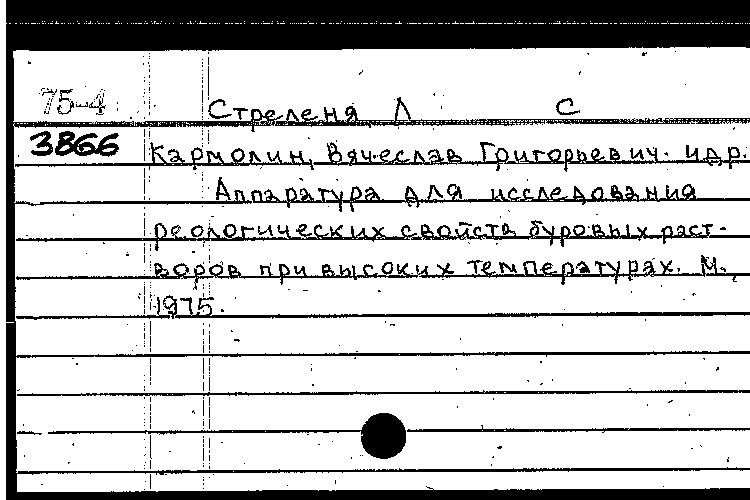 75-4
Стреленя Л С
3866
Кармолин, Вячеслав Григорьевич. и др.
Аппаратура для исследования
реологических свойств буровых раст-
воров при высоких температурах. М.,
1975.